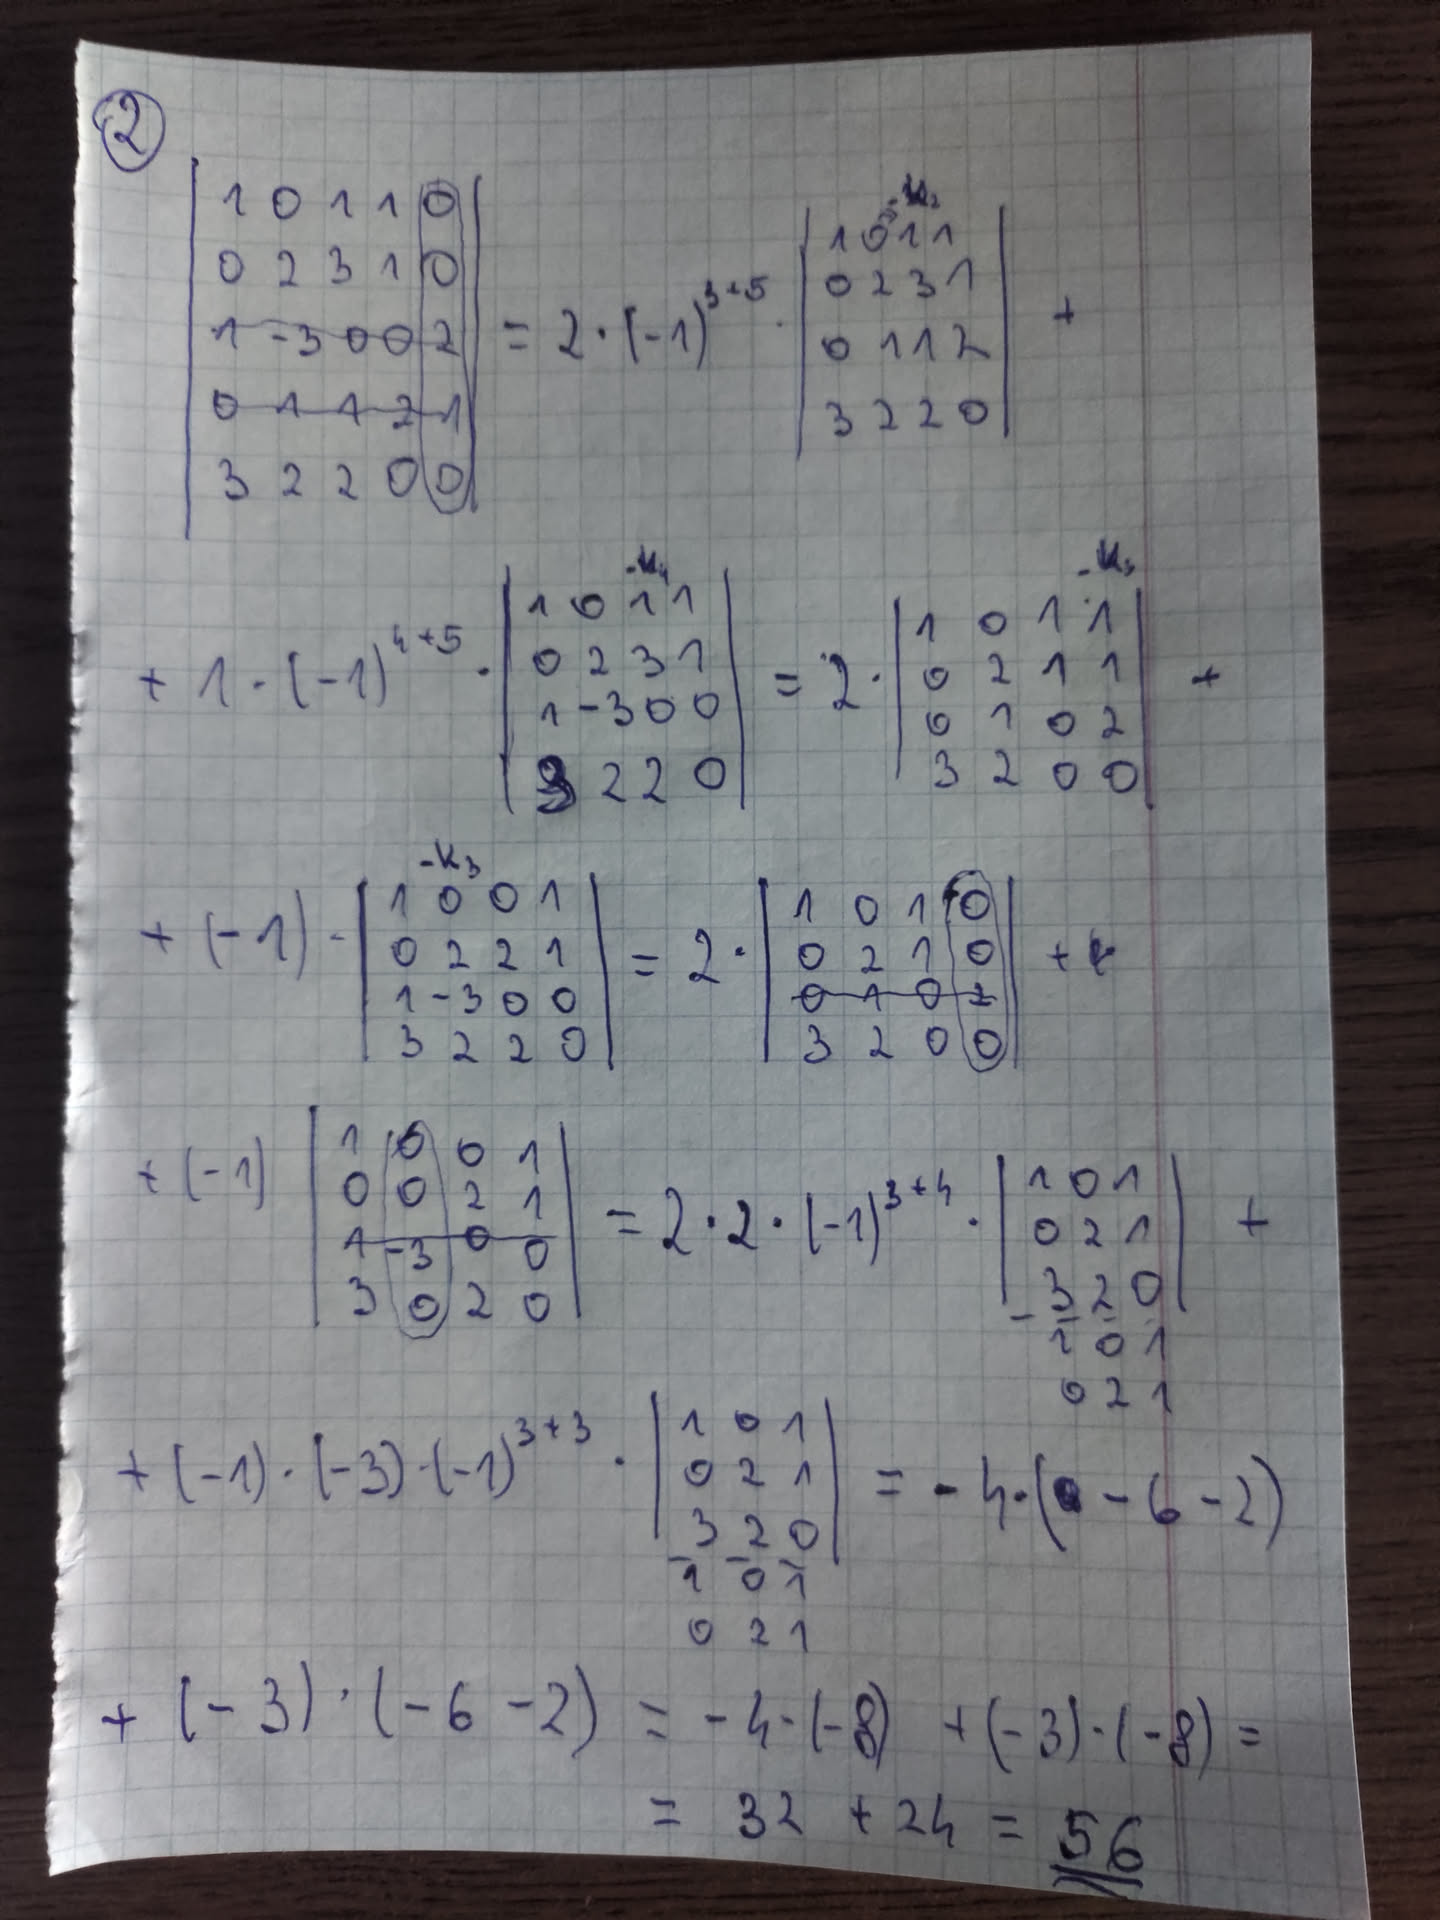 2
| 1 0 1 1 0 |
| 0 2 3 1 0 |
| 1 -3 0 0 2 |
| 0 1 1 2 1 |
| 3 2 2 0 0 |
= 2 · (-1)^{3+5} ·
| 1 0 1 1 |
| 0 2 3 1 |
| 0 1 1 2 |
| 3 2 2 0 |
+
+ 1 · (-1)^{4+5} ·
-k₄
| 1 0 1 1 |
| 0 2 3 1 |
| 1 -3 0 0 |
| 3 2 2 0 |
= 2 ·
-k₃
| 1 0 1 1 |
| 0 2 1 1 |
| 0 1 0 2 |
| 3 2 0 0 |
+
+ (-1) ·
-k₃
| 1 0 0 1 |
| 0 2 2 1 |
| 1 -3 0 0 |
| 3 2 2 0 |
= 2 ·
| 1 0 1 0 |
| 0 2 1 0 |
| 0 1 0 2 |
| 3 2 0 0 |
+
+ (-1)
| 1 0 0 1 |
| 0 0 2 1 |
| 1 -3 0 0 |
| 3 0 2 0 |
= 2 · 2 · (-1)^{3+4} ·
| 1 0 1 |
| 0 2 1 |
| 3 2 0 |
1 0 1
0 2 1
+
+ (-1) · (-3) · (-1)^{3+3} ·
| 1 0 1 |
| 0 2 1 |
| 3 2 0 |
1 0 1
0 2 1
= - 4 · ( - 6 - 2)
+ (-3) · (-6 - 2) = - 4 · (-8) + (-3) · (-8) =
= 32 + 24 = 56